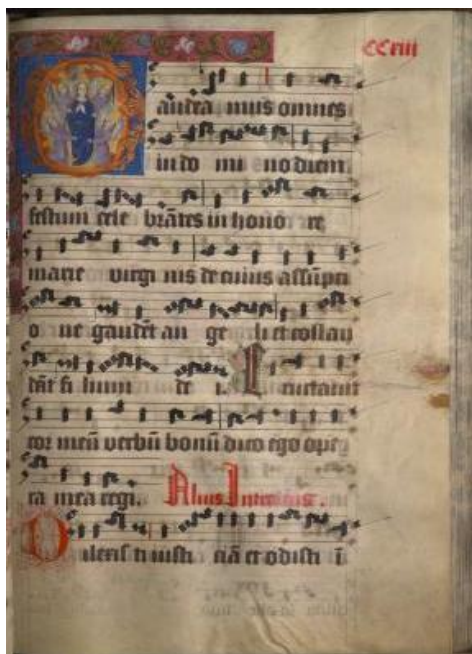 CCriii
Gaudea mus omnes
in do mi no diem
festum cele brātes in hono re
marie virgi nis de cuius assūpti
o ne gaudēt an ge li et collau
dāt fi lium de i. E ructauit
cor meū verbū bonū dico ego ope
ra mea regi. Alius Introitus.
Dilexisti iusti ciā et odisti ī